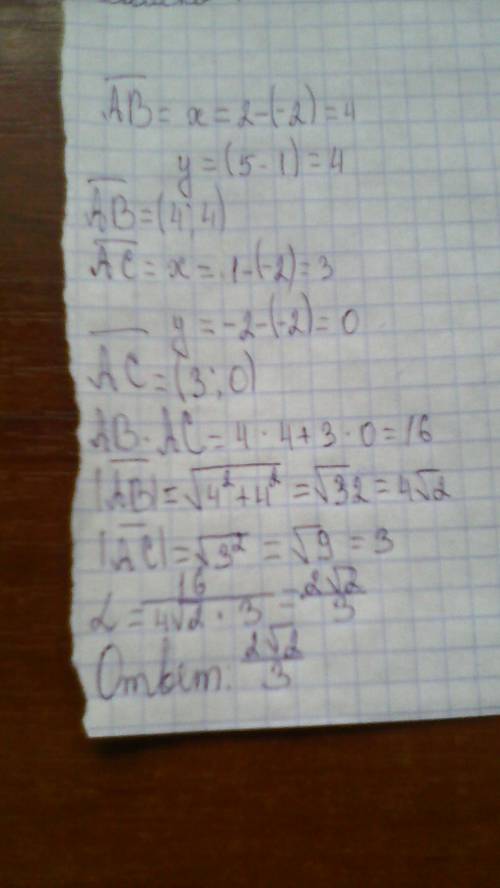 AB = x = 2-(-2) = 4
y = (5-1) = 4
AB = (4; 4)
AC = x = 1-(-2) = 3
y = -2-(-2) = 0
AC = (3; 0)
AB · AC = 4 · 4 + 3 · 0 = 16
|AB| = √4² + 4² = √32 = 4√2
|AC| = √3² = √9 = 3
L = 16 / 4√2 · 3 = 2√2 / 3
Ответ: 2√2 / 3